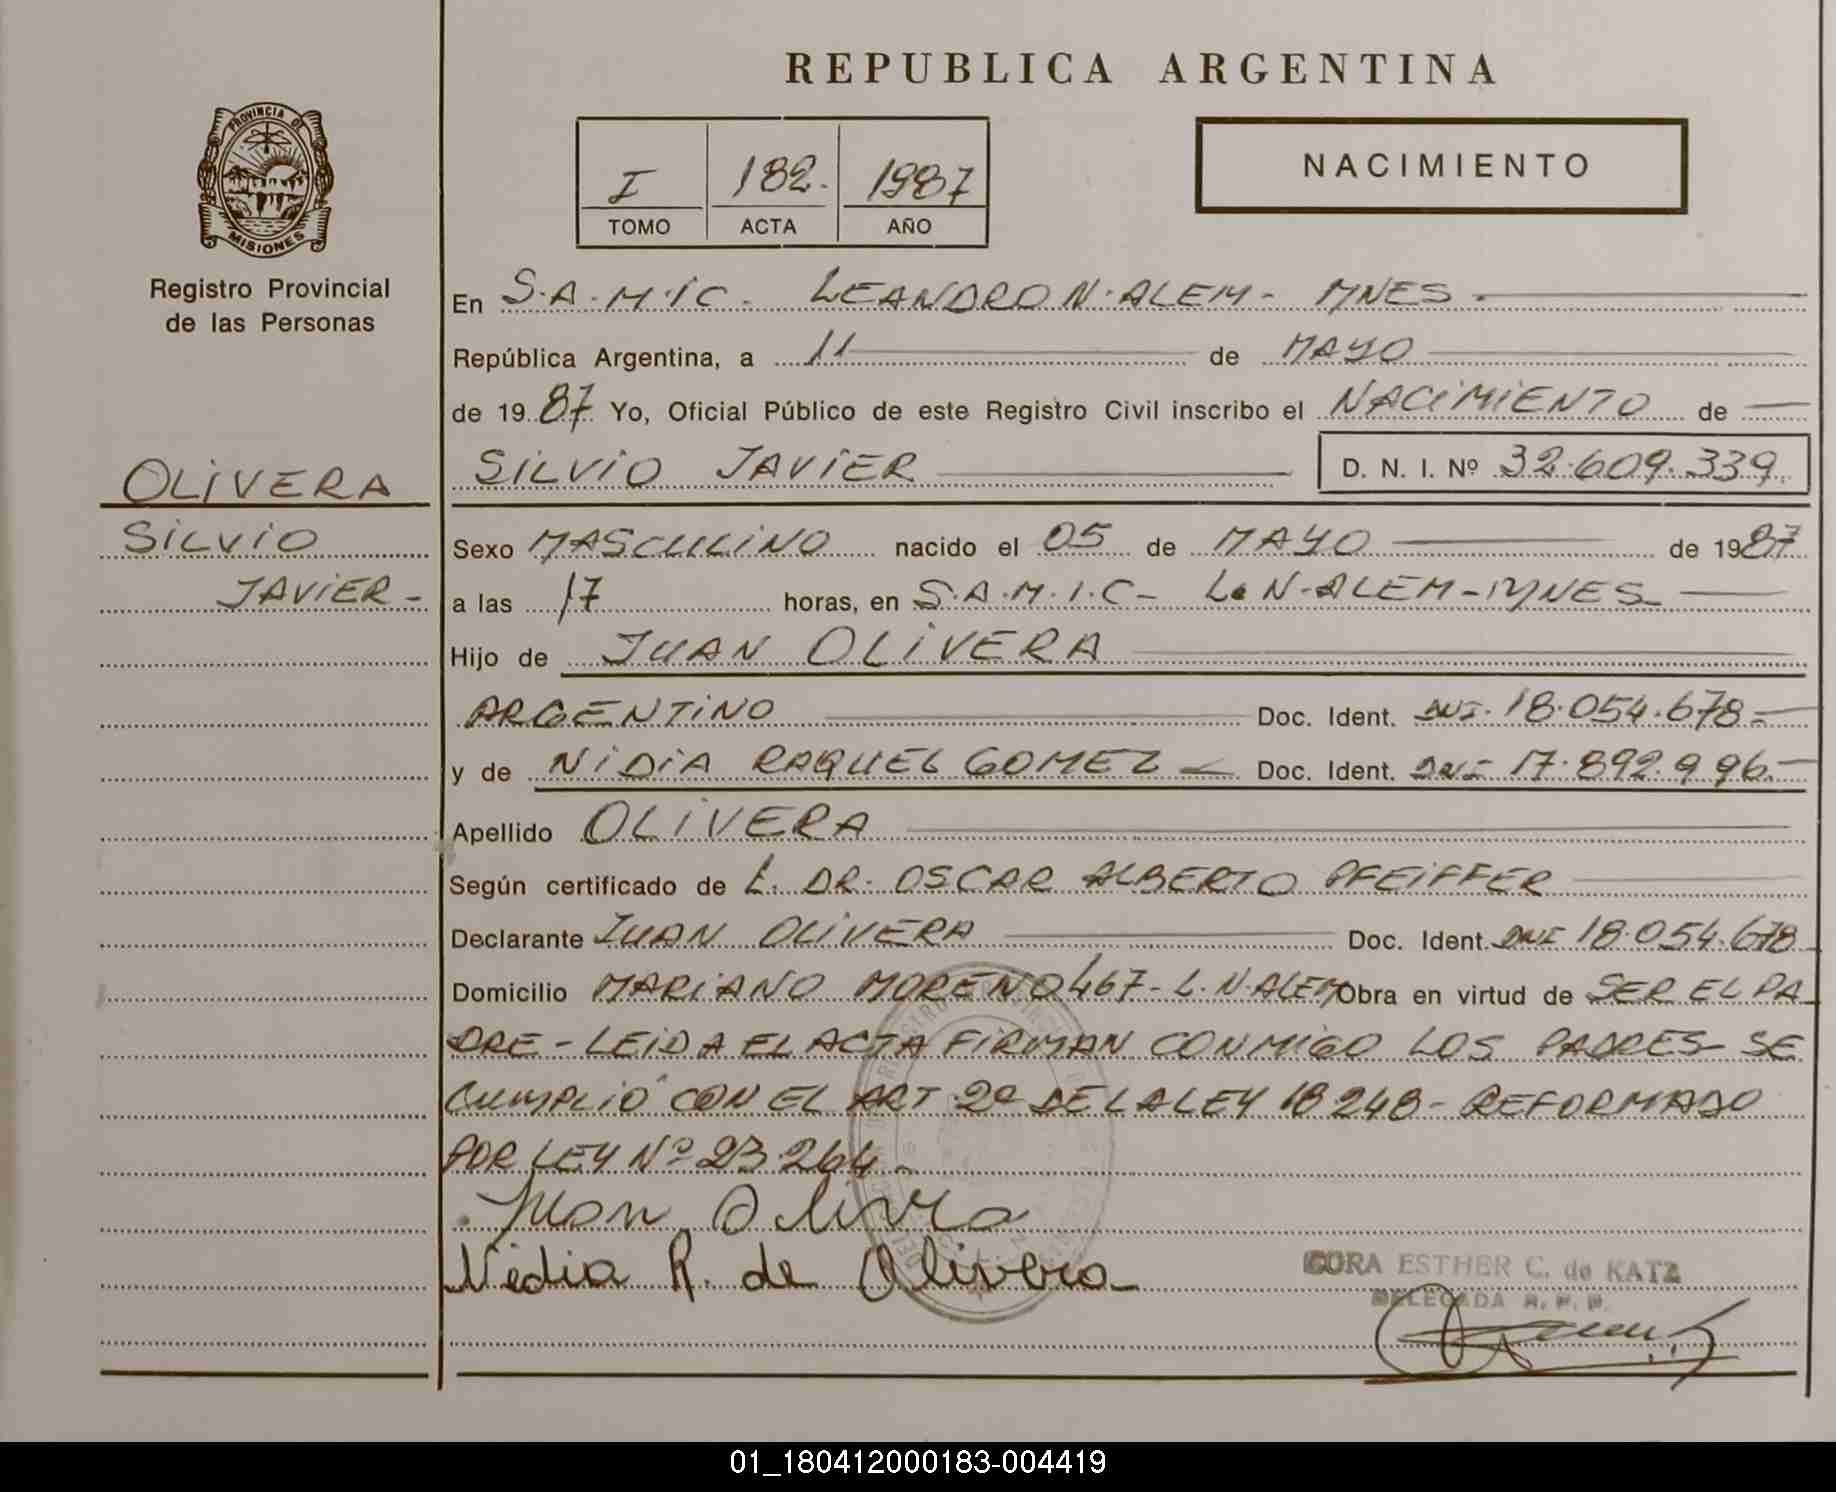 REPUBLICA ARGENTINA
PROVINCIA DE
MISIONES
Registro Provincial
de las Personas
I 182. 1987
TOMO ACTA AÑO
NACIMIENTO
En S.A.M.I.C. LEANDRO N. ALEM - MNES.
República Argentina, a 11 de MAYO
de 1987 Yo, Oficial Público de este Registro Civil inscribo el NACIMIENTO de
SILVIO JAVIER D. N. I. Nº 32.609.339
OLIVERA
SILVIO
JAVIER -
Sexo MASCULINO nacido el 05 de MAYO de 1987
a las 17 horas, en S.A.M.I.C - L. N. ALEM - MNES
Hijo de JUAN OLIVERA
ARGENTINO Doc. Ident. DNI. 18.054.678 -
y de NIDIA RAQUEL GOMEZ Doc. Ident. DNI - 17.892.996 -
Apellido OLIVERA
Según certificado de L. DR. OSCAR ALBERTO PFEIFFER
Declarante JUAN OLIVERA Doc. Ident. DNI 18.054.678
Domicilio MARIANO MORENO 467 - L. N. ALEM Obra en virtud de SER EL PA
DRE - LEIDA EL ACTA FIRMAN CONMIGO LOS PADRES SE
CUMPLIO CON EL ART 2º DE LA LEY 18248 - REFORMADO
POR LEY Nº 23.264 -
Juan Olivera
Nidia R. de Olivera
ESTHER C. de KATZ
DELEGADA
01_180412000183-004419